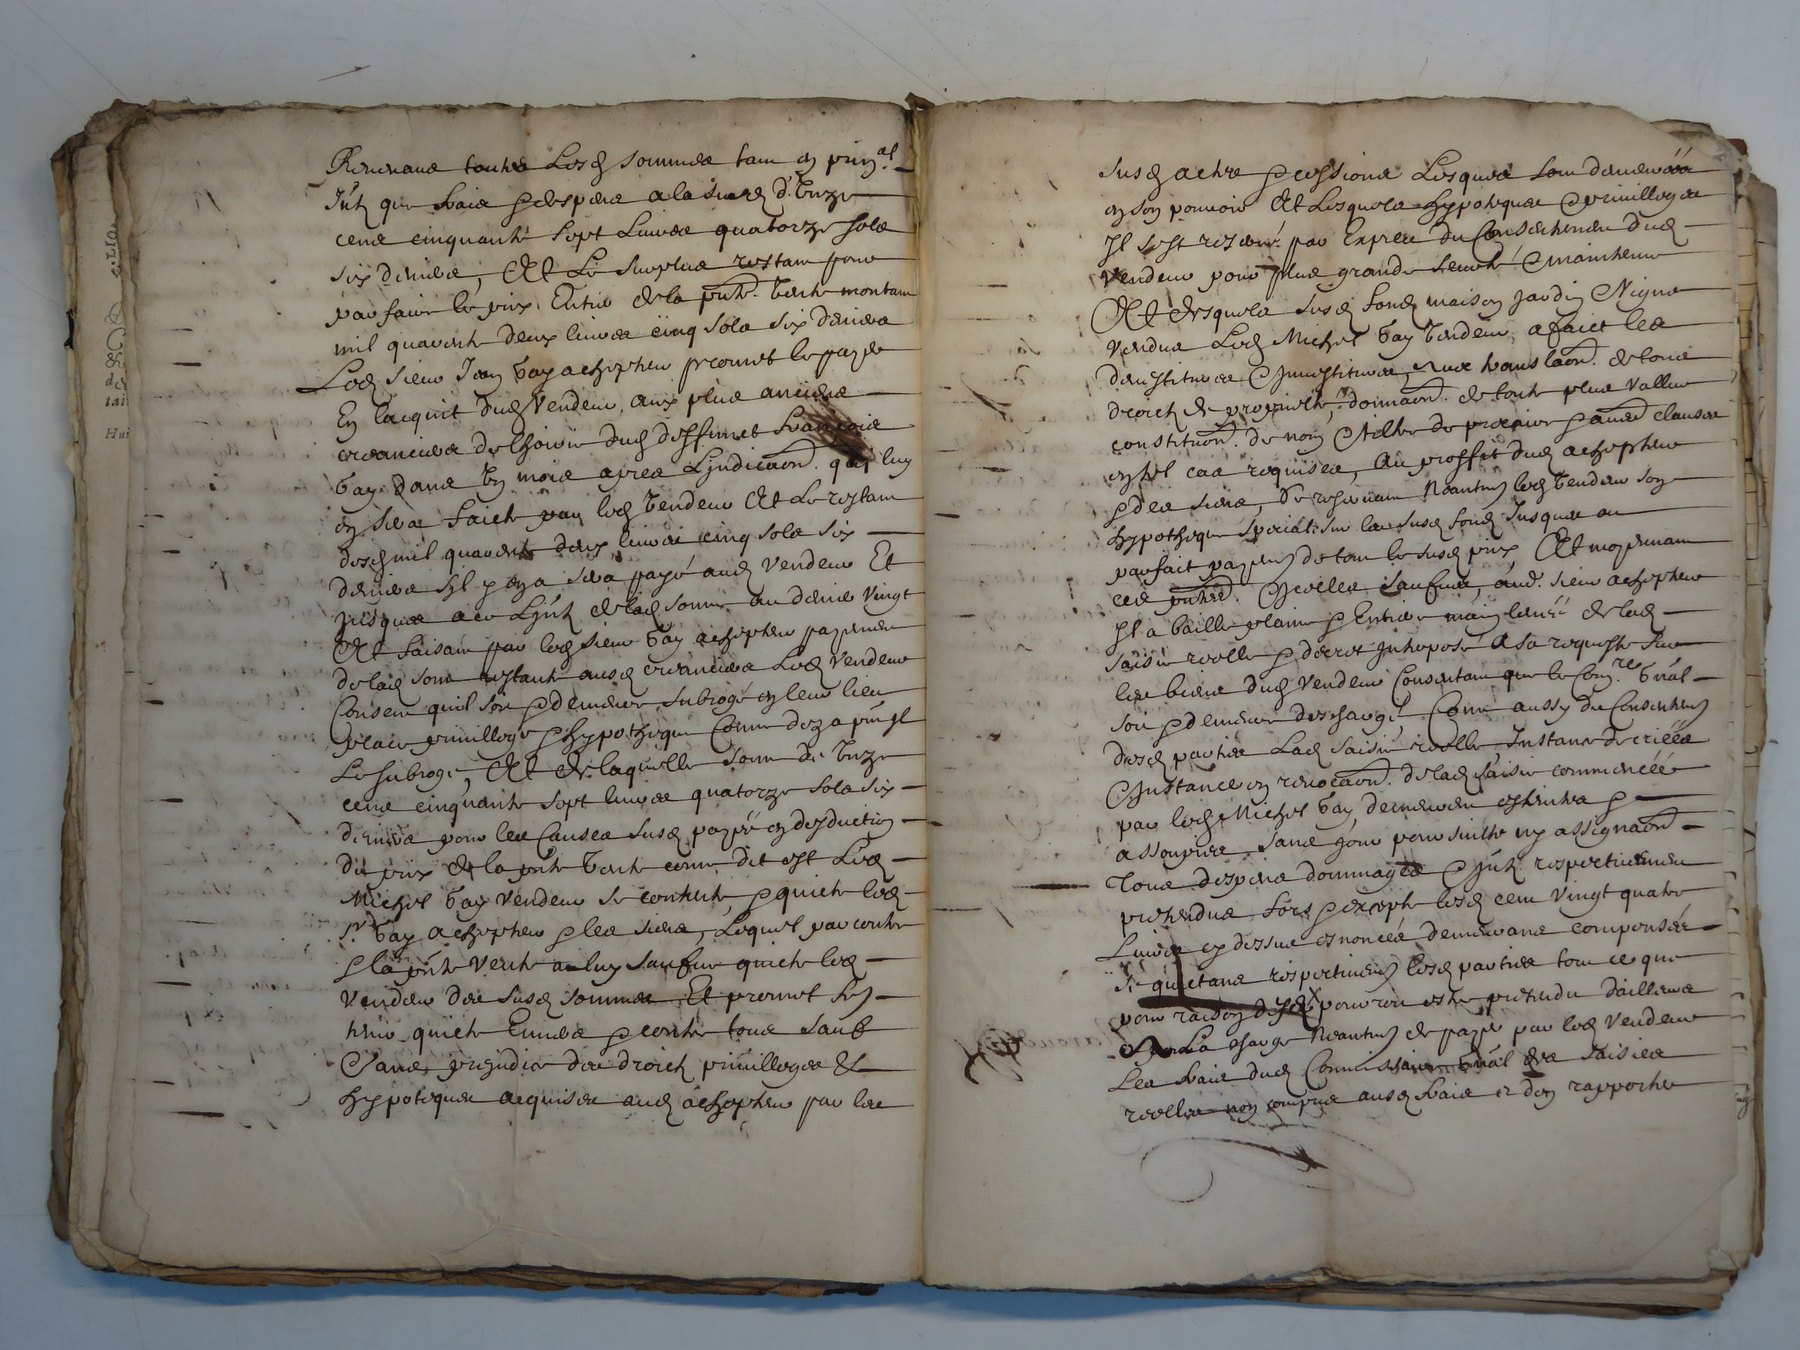 Revenans toutes Lesd sommes tant en prin.al
Intz que frais et despens a la somme d'Unze
cens cinquante sept Livres quatorze sols
six deniers, Et Le surplus restant pour
parfaire le prix Entier de la pnte. Vente montant
mil quarente deux livres cinq sols six deniers
Led sieur Jean Gay achepteur promet le payer
En lacquit dud Vendeur, aux plus anciens
creanciers de lhoirie dud deffunct François
Gay dans Un mois apres Lindicaon. qui luy
en sera faicte par led Vendeur Et Le restant
desd mil quarente deux livres cinq sols six
deniers sil y en a sera payé aud Vendeur Et
jusques a ce Lintz de lad somme au denier Vingt
Et faisant par led sieur Gay achepteur payement
de lad som restante ausd creanciers Led Vendeur
Consent quil soit et demeure subrogé en leur lieu
place privillege et hypotheque Comme dez a pnt Il
Le subroge, Et de laquelle somme de Unze
cens cinquante sept livres quatorze sols six
deniers pour les Causes susd payée en desduction
du prix de la pnte Vente comme dit est Led
Michel Gay Vendeur se contente et quicte led
sr Gay achepteur et les siens, Lequel par contre
et la pnte Vente a luy saufve quicte led
Vendeur des susd sommes Et promet len
tenir quicte Envers et contre tous sauf
Et sans prejudice des droictz privilleges Et
hypoteques acquises aud achepteur par les
susd actes et cessions Lesquels sont demeurés
en son pouvoir Et Lesquels hypoteques et privilleges
Il sest reservé par Exprés du Consentement dud
Vendeur pour plus grande seureté et maintenue
Et desquels susd fonds maison jardin et Vigne
Vendus Led Michel Gay Vendeur, a faict les
devestitures et Investitures, avec translaon. de tous
droictz de proprieté domaon. de toute plus Vallue
constituon. de nom et tiltre de precaire et autres clauses
en tel cas requises, Au proffit dud achepteur
et des siens, Se reservant Neantmns led Vendeur son
hypotheque special sur les susd fonds Jusques au
parfait payemt de tout le susd prix Et moyenant
ces pntes. Et icelles sauves, aud. sieur achepteur
Il a baillé plaine et Entiere main levée de lad
saisie reelle et decret Interposé A sa requeste sur
les biens dud Vendeur Consentant que le Com.re Gnal
soit et demeure deschargé, Comme aussy du Consentemt
desd parties Lad saisie reelle Instance de criées
Et Instance en revocaon. de lad saisie commencée
par led Michel Gay, demeurent esteintes et
assoupies, sans quon pour suitte ny assignaon
Tous despens dommages et Intz respectivement
pretendus fors et excepté lesd cent Vingt quatre
Livres cy dessus enoncées demeurans compensés
Se quictans respectivemt lesd parties tout ce que
pour raison de ce pourroit estre pretendu d'ailleurs
A La charge Neantmns de payer par led Vendeur
Les frais dud Commissaire Gnal des saisies
reelles non compris ausd frais et don rapporter